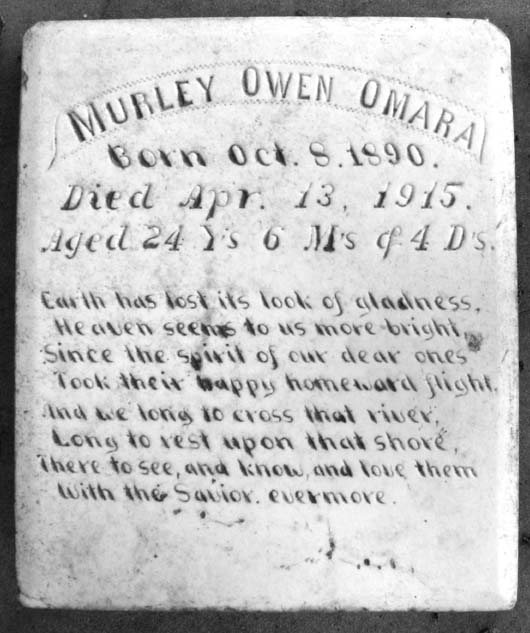 MURLEY OWEN OMARA
Born Oct. 8. 1890.
Died Apr. 13, 1915.
Aged 24 Y's 6 M's & 4 D's.
Earth has lost its look of gladness,
Heaven seems to us more bright,
Since the spirit of our dear ones
Took their happy homeward flight,
And we long to cross that river,
Long to rest upon that shore,
There to see, and know, and love them
With the Savior. evermore.